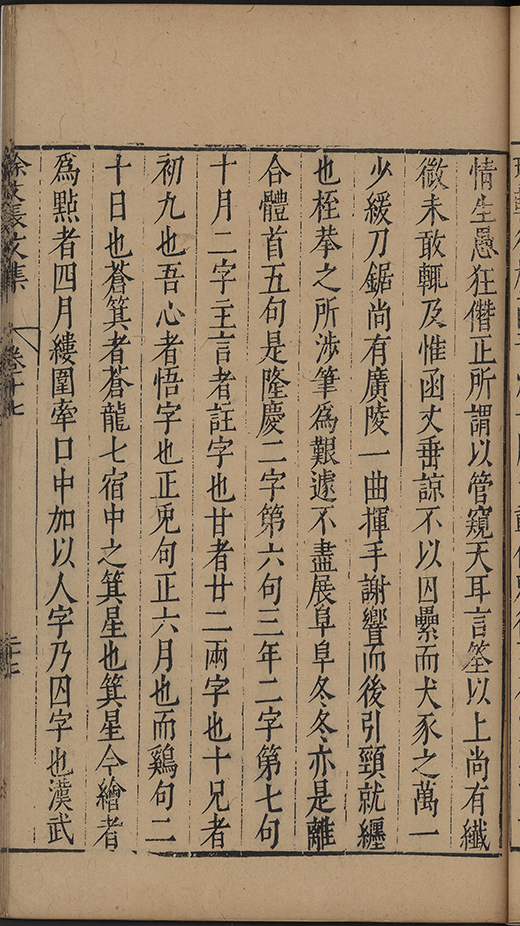 情生愚狂僭正所謂以管窺天耳言筌以上尚有纖
微未敢輒及惟函丈垂諒不以囚纍而犬豕之萬一
少緩刀鋸尚有廣陵一曲揮手謝響而後引頸就纏
也桎拲之所涉筆爲艱遽不盡展阜阜冬冬亦是離
合體首五句是隆慶二字第六句三年二字第七句
十月二字主言者註字也甘者廿二兩字也十兄者
初九也吾心者悟字也正兎句正六月也而鷄句二
十日也蒼箕者蒼龍七宿中之箕星也箕星今繪者
爲㸃者四月縷圍牽口中加以人字乃囚字也漢武
徐文長文集
卷十七
二十七